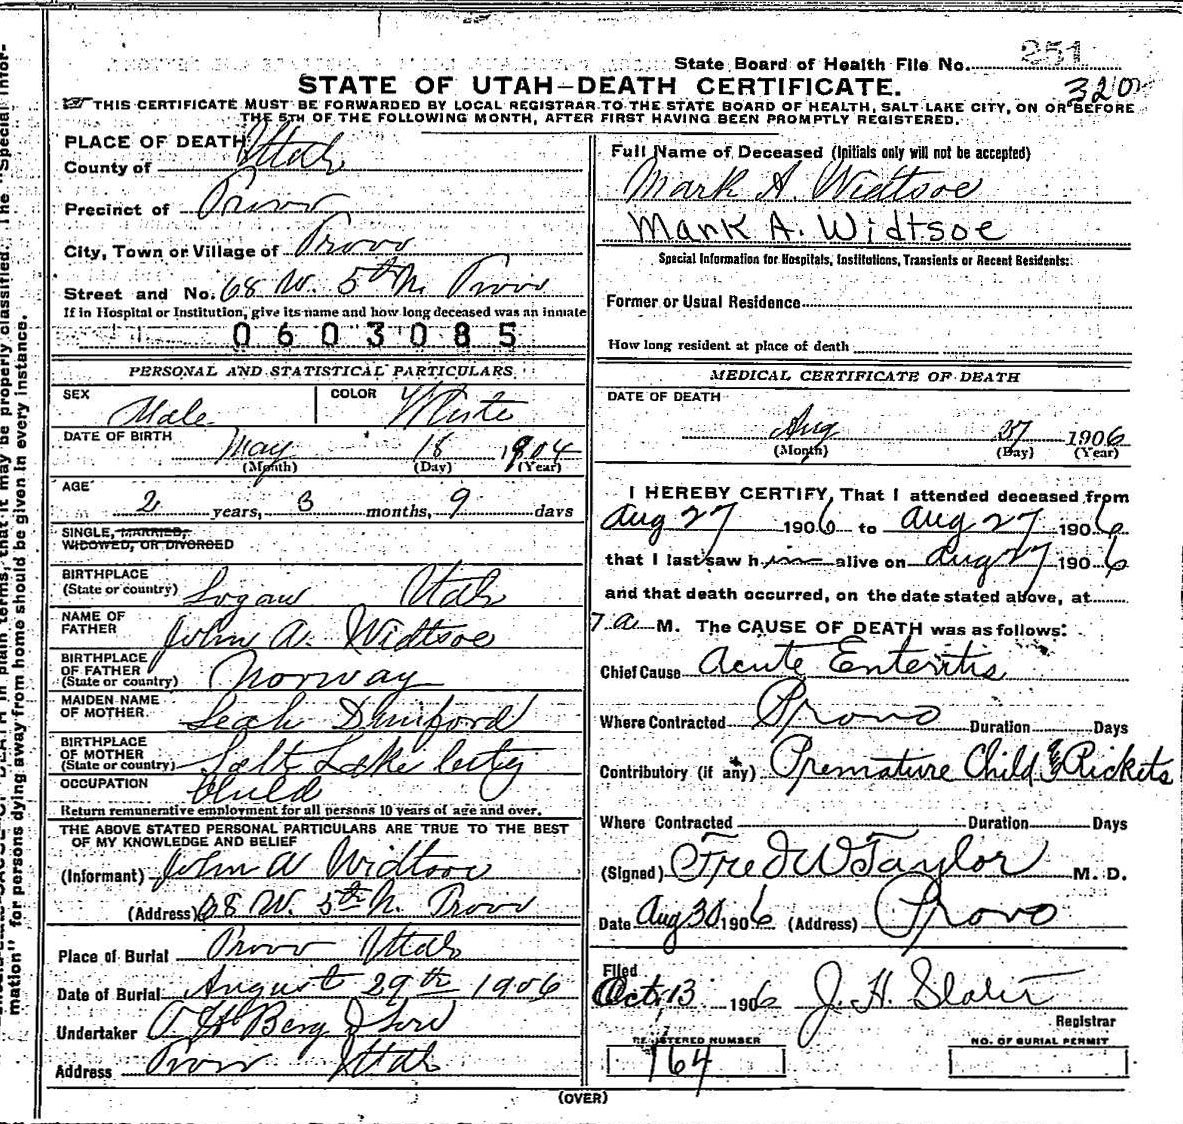 State Board of Health File No. 251
STATE OF UTAH—DEATH CERTIFICATE.
320
THIS CERTIFICATE MUST BE FORWARDED BY LOCAL REGISTRAR TO THE STATE BOARD OF HEALTH, SALT LAKE CITY, ON OR BEFORE
THE 5TH OF THE FOLLOWING MONTH, AFTER FIRST HAVING BEEN PROMPTLY REGISTERED.
PLACE OF DEATH
County of Utah
Precinct of Provo
City, Town or Village of Provo
Street and No. 68 W. 5th N. Provo
If in Hospital or Institution, give its name and how long deceased was an inmate
0603085
PERSONAL AND STATISTICAL PARTICULARS
SEX Male COLOR White
DATE OF BIRTH May 18 1904
(Month) (Day) (Year)
AGE 2 years, 3 months, 9 days
SINGLE, MARRIED,
WIDOWED, OR DIVORCED
BIRTHPLACE
(State or country) Logan Utah
NAME OF
FATHER John A. Widtsoe
BIRTHPLACE
OF FATHER
(State or country) Norway
MAIDEN NAME
OF MOTHER Leah Dunford
BIRTHPLACE
OF MOTHER
(State or country) Salt Lake City
OCCUPATION Child
Return remunerative employment for all persons 10 years of age and over.
THE ABOVE STATED PERSONAL PARTICULARS ARE TRUE TO THE BEST
OF MY KNOWLEDGE AND BELIEF
(Informant) John A Widtsoe
(Address) 68 W. 5th N. Provo
Place of Burial Provo Utah
Date of Burial August 29th 1906
Undertaker O. H. Berg & Son
Address Provo Utah
Full Name of Deceased (Initials only will not be accepted)
Mark A. Widtsoe
Mark A. Widtsoe
Special Information for Hospitals, Institutions, Transients or Recent Residents:
Former or Usual Residence
How long resident at place of death
MEDICAL CERTIFICATE OF DEATH
DATE OF DEATH
Aug 27 1906
(Month) (Day) (Year)
I HEREBY CERTIFY, That I attended deceased from
Aug 27 1906 to Aug 27 1906
that I last saw him alive on Aug 27 1906
and that death occurred, on the date stated above, at
7 a M. The CAUSE OF DEATH was as follows:
Chief Cause Acute Enteritis
Where Contracted Provo Duration Days
Contributory (if any) Premature Child & Rickets
Where Contracted Duration Days
(Signed) Fred W Taylor M. D.
Date Aug 30 1906 (Address) Provo
Filed
Oct 13 1906 J. H. Slater
Registrar
REGISTERED NUMBER NO. OF BURIAL PERMIT
164
(OVER)
DEATH in plain terms, that it may be properly classified. The "Special Infor-
mation" for persons dying away from home should be given in every instance.